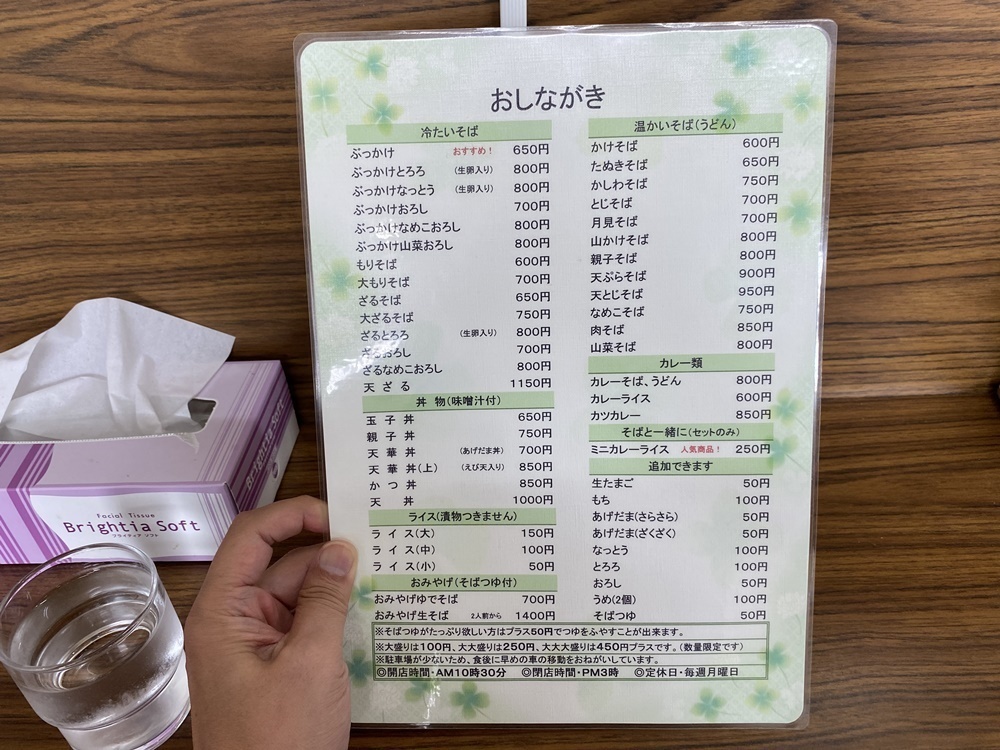 おしながき
冷たいそば
ぶっかけ おすすめ! 650円
ぶっかけとろろ (生卵入り) 800円
ぶっかけなっとう (生卵入り) 800円
ぶっかけおろし 700円
ぶっかけなめこおろし 800円
ぶっかけ山菜おろし 800円
もりそば 600円
大もりそば 700円
ざるそば 650円
大ざるそば 750円
ざるとろろ (生卵入り) 800円
ざるおろし 700円
ざるなめこおろし 800円
天ざる 1150円
丼物(味噌汁付)
玉子丼 650円
親子丼 750円
天華丼 (あげだま丼) 700円
天華丼(上) (えび天入り) 850円
かつ丼 850円
天丼 1000円
ライス(漬物つきません)
ライス(大) 150円
ライス(中) 100円
ライス(小) 50円
おみやげ(そばつゆ付)
おみやげゆでそば 700円
おみやげ生そば 2人前から 1400円
温かいそば(うどん)
かけそば 600円
たぬきそば 650円
かしわそば 750円
とじそば 700円
月見そば 700円
山かけそば 800円
親子そば 800円
天ぷらそば 900円
天とじそば 950円
なめこそば 750円
肉そば 850円
山菜そば 800円
カレー類
カレーそば、うどん 800円
カレーライス 600円
カツカレー 850円
そばと一緒に(セットのみ)
ミニカレーライス 人気商品! 250円
追加できます
生たまご 50円
もち 100円
あげだま(さらさら) 50円
あげだま(ざくざく) 50円
なっとう 100円
とろろ 100円
おろし 50円
うめ(2個) 100円
そばつゆ 50円
※そばつゆがたっぷり欲しい方はプラス50円でつゆをふやすことが出来ます。
※大盛りは100円、大大盛りは250円、大大大盛りは450円プラスです。(数量限定です)
※駐車場が少ないため、食後に早めの車の移動をおねがいしています。
◎開店時間・AM10時30分 ◎閉店時間・PM3時 ◎定休日・毎週月曜日
Facial Tissue
Brightia Soft
ブライティア ソフト
Brightia Soft